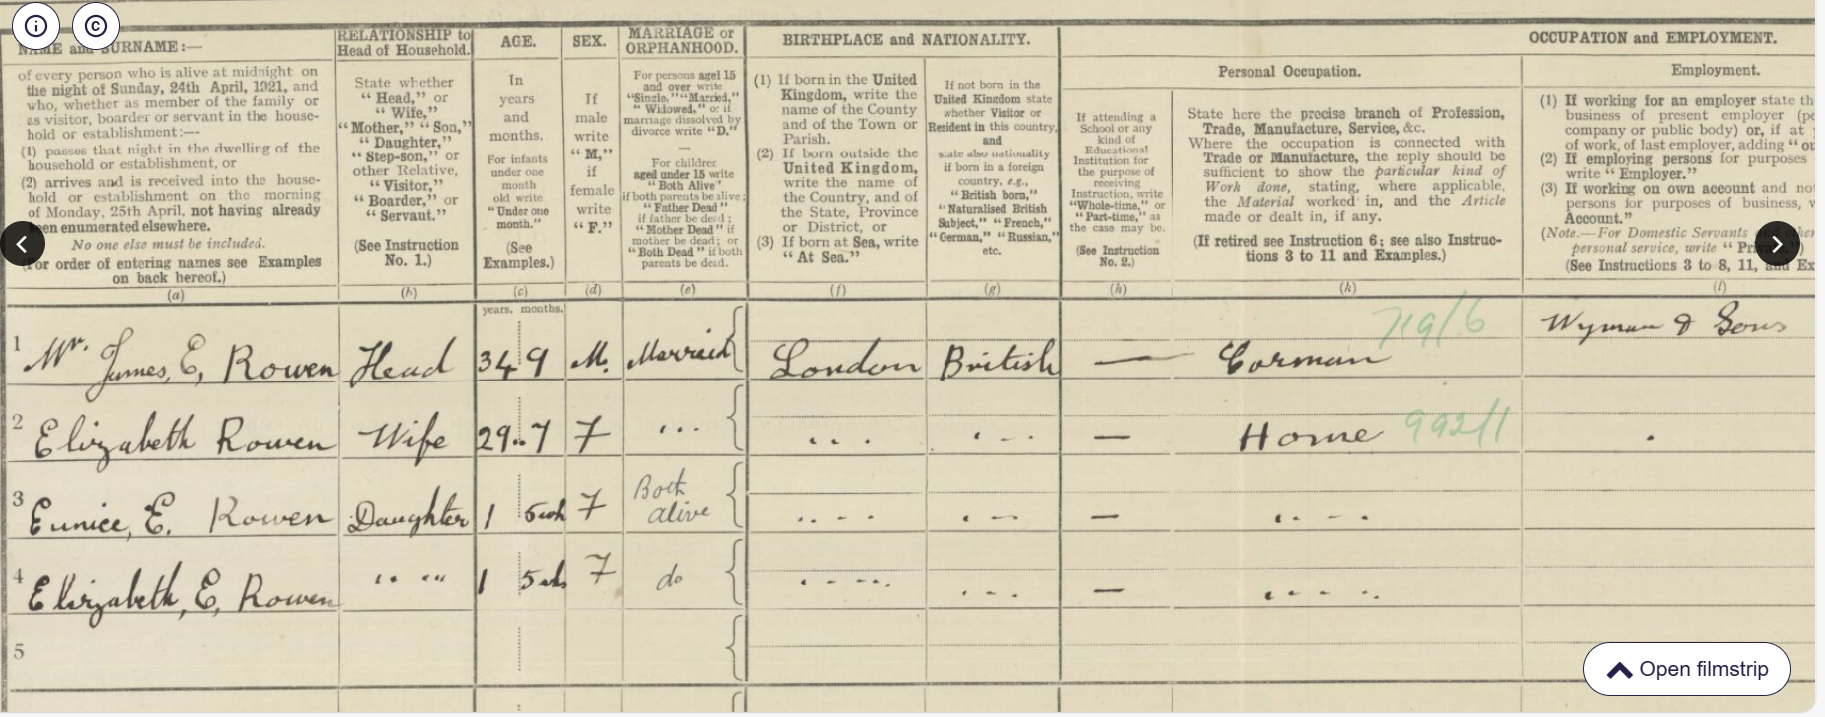 NAME and SURNAME:—
of every person who is alive at midnight on
the night of Sunday, 24th April, 1921, and
who, whether as member of the family or
as visitor, boarder or servant in the house-
hold or establishment:—
(1) passes that night in the dwelling of the
household or establishment, or
(2) arrives and is received into the house-
hold or establishment on the morning
of Monday, 25th April, not having already
been enumerated elsewhere.
No one else must be included.
(For order of entering names see Examples
on back hereof.)
(a)
RELATIONSHIP to
Head of Household.
State whether
"Head," or
"Wife,"
"Mother," "Son,"
"Daughter,"
"Step-son," or
other Relative,
"Visitor,"
"Boarder," or
"Servant."
(See Instruction
No. 1.)
(b)
AGE.
In
years
and
months.
For infants
under one
month
old write
"Under one
month."
(See
Examples.)
(c)
years. months.
SEX.
If
male
write
"M,"
if
female
write
"F."
(d)
MARRIAGE or
ORPHANHOOD.
For persons aged 15
and over write
"Single," "Married,"
"Widowed," or if
marriage dissolved by
divorce write "D."
—
For children
aged under 15 write
"Both Alive"
if both parents be alive;
"Father Dead"
if father be dead;
"Mother Dead" if
mother be dead; or
"Both Dead" if both
parents be dead.
(e)
BIRTHPLACE and NATIONALITY.
(1) If born in the United
Kingdom, write the
name of the County
and of the Town or
Parish.
(2) If born outside the
United Kingdom,
write the name of
the Country, and of
the State, Province
or District, or
(3) If born at Sea, write
"At Sea."
(f)
If not born in the
United Kingdom state
whether Visitor or
Resident in this country,
and
state also nationality
if born in a foreign
country, e.g.,
"British born,"
"Naturalised British
Subject," "French,"
"German," "Russian,"
etc.
(g)
OCCUPATION and EMPLOYMENT.
If attending a
School or any
kind of
Educational
Institution for
the purpose of
receiving
Instruction, write
"Whole-time," or
"Part-time," as
the case may be.
(See Instruction
No. 2.)
(h)
Personal Occupation.
State here the precise branch of Profession,
Trade, Manufacture, Service, &c.
Where the occupation is connected with
Trade or Manufacture, the reply should be
sufficient to show the particular kind of
Work done, stating, where applicable,
the Material worked in, and the Article
made or dealt in, if any.
(If retired see Instruction 6; see also Instruc-
tions 3 to 11 and Examples.)
(k)
Employment.
(1) If working for an employer state th
business of present employer (pe
company or public body) or, if at
of work, of last employer, adding "ou
(2) If employing persons for purposes
write "Employer."
(3) If working on own account and no
persons for purposes of business, w
Account."
(Note.—For Domestic Servants and other
personal service, write "Private.")
(See Instructions 3 to 8, 11, and Ex
(l)
719/6 Wyman & Sons
1 Mr. James, E, Rowen Head 34 9 M. Married London British — Carman
2 Elizabeth Rowen Wife 29 7 F ... .. .. . - - — Home 992/1
3 Eunice, E. Rowen Daughter 1 5 F Both alive .. - - . - - — .. - -
4 Elizabeth, E, Rowen " " " 1 5 F do . - - .. . . . — . - - ..
5
Open filmstrip